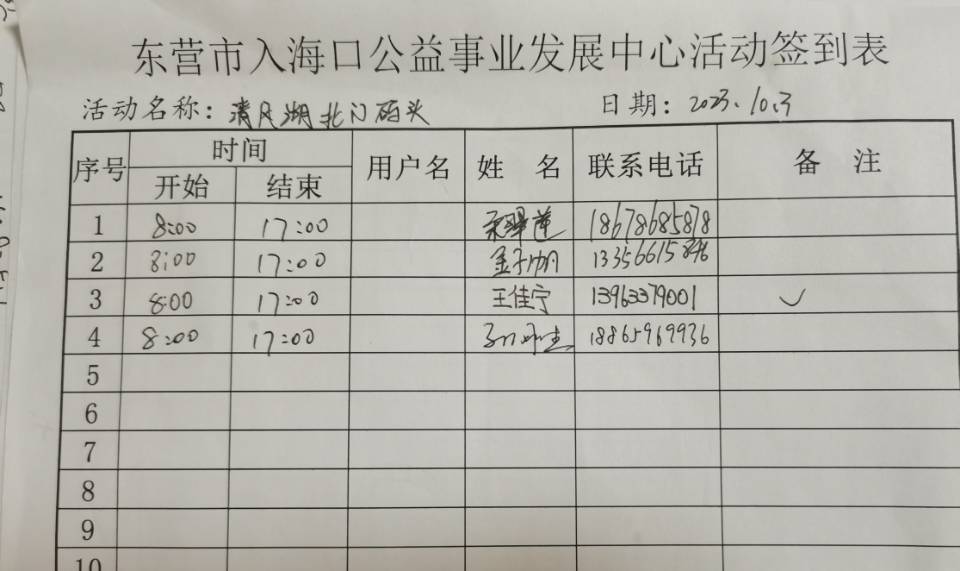 东营市入海口公益事业发展中心活动签到表
活动名称：清风湖北门码头 日期：2023.10.3
序号 时间 用户名 姓 名 联系电话 备 注
开始 结束
1 8:00 17:00 18678685878
2 8:00 17:00 金子帅 13356615846
3 8:00 17:00 王佳宁 13963379001 ✓
4 8:00 17:00 18865969936
5
6
7
8
9
10